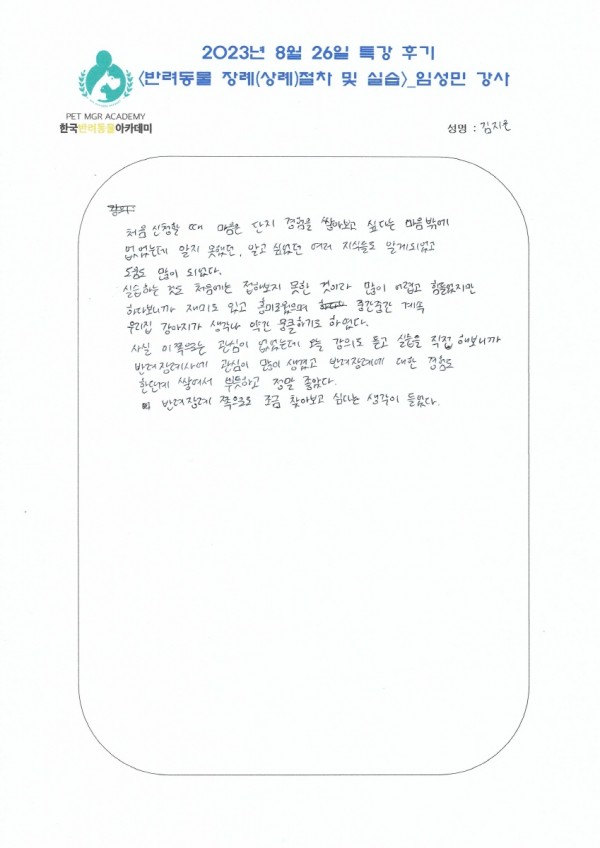 2023년 8월 26일 특강 후기
<반려동물 장례(상례)절차 및 실습>_임성민 강사
PET MGR ACADEMY
한국반려동물아카데미
성명 : 김지은
처음 신청할 때 마음은 단지 경험을 쌓아보고 싶다는 마음밖에
없었는데 알지 못했던, 알고 싶었던 여러 지식들도 알게되었고
도움도 많이 되었다.
실습하는 것도 처음에는 접해보지 못한 것이라 많이 어렵고 힘들었지만
하다보니까 재미도 있고 흥미로웠으며 중간중간 계속
우리집 강아지가 생각나 약간 뭉클하기도 하였다.
사실 이쪽으로는 관심이 없었는데 오늘 강의도 듣고 실습을 직접 해보니까
반려장례사에 관심이 많이 생겼고 반려장례에 대한 경험도
한단계 쌓여서 뿌듯하고 정말 좋았다.
반려장례 쪽으로도 조금 찾아보고 싶다는 생각이 들었다.